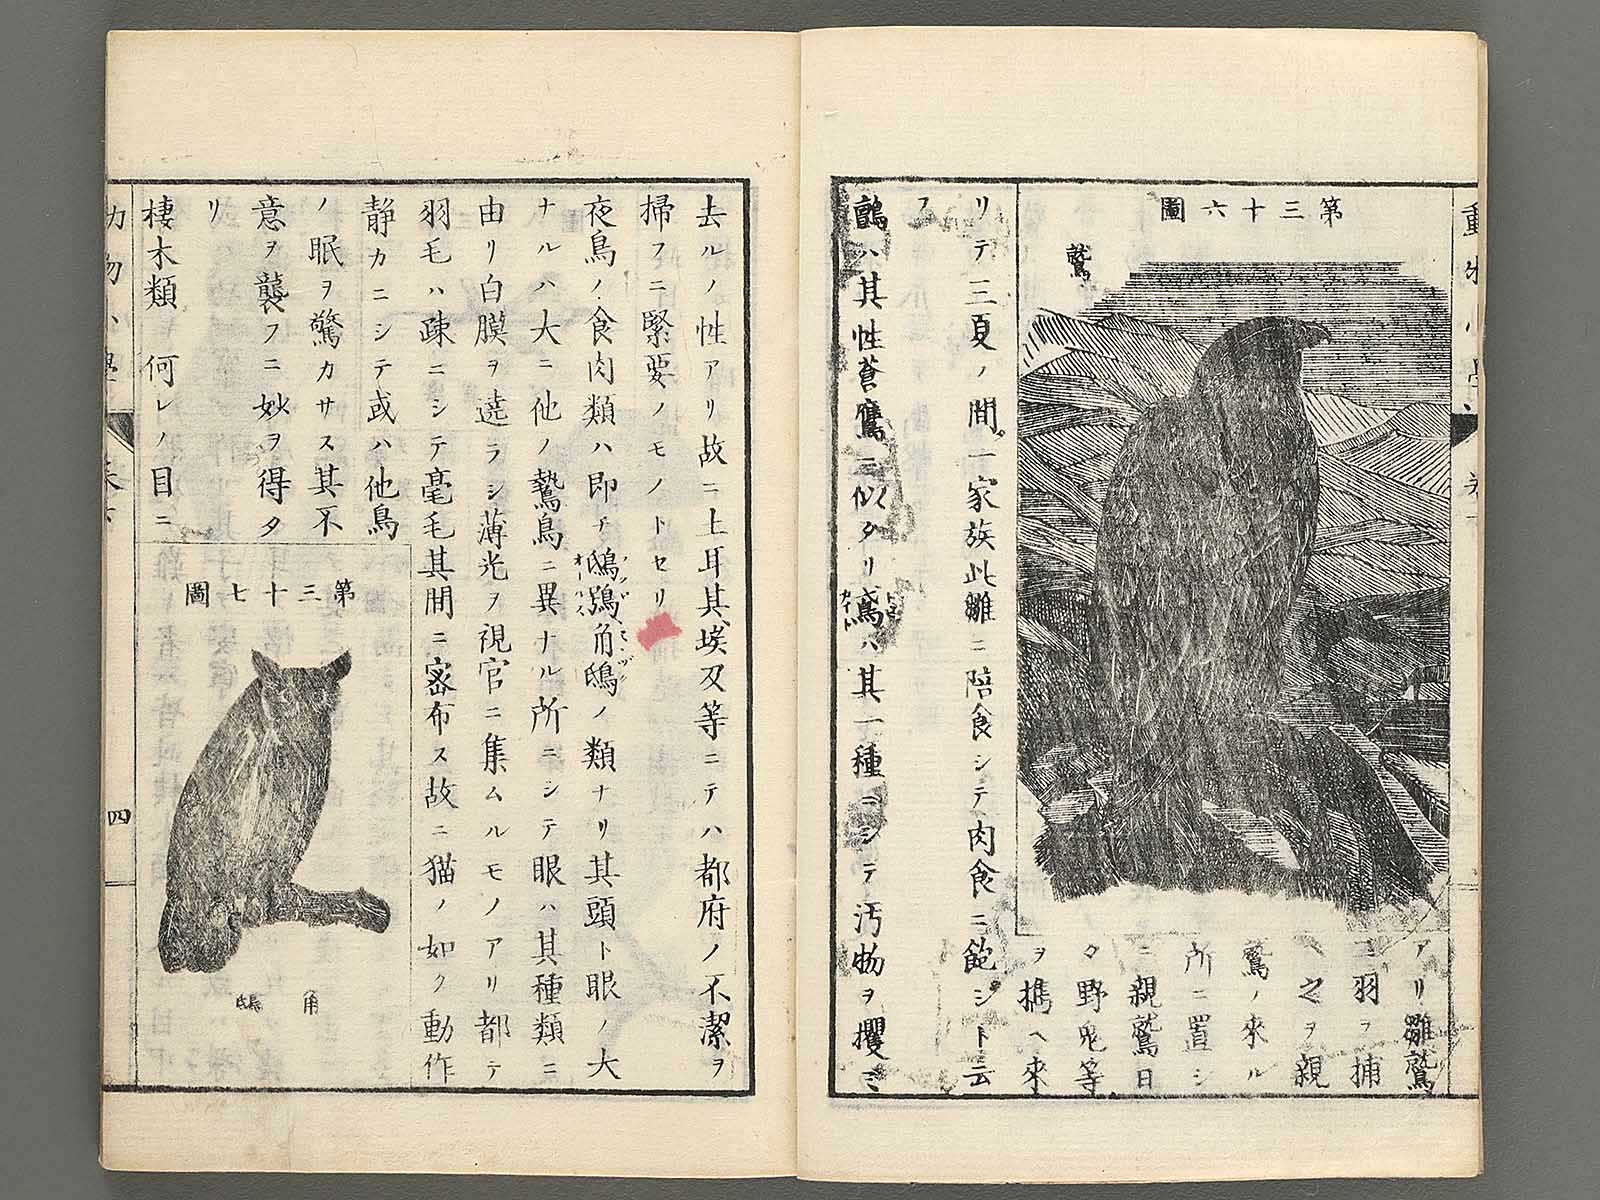 動物小學
第三十六圖
鷲
アリ雛鷲
二羽ヲ捕
ヘ之ヲ親
鷲ノ來ル
所ニ置シ
ニ親鷲日
々野兎等
ヲ擕ヘ來
リテ三夏ノ間一家族此雛ニ陪食シテ肉食ニ飽シト云
フ
鷂ハ其性蒼鷹ニ似タリ鳶ハ其一種ニシテ汚物ヲ攫ミ
去ルノ性アリ故ニ土耳其埃及等ニテハ都府ノ不潔ヲ
掃フニ緊要ノモノトセリ
夜鳥ノ食肉類ハ即チ鴟鴞角鴟ノ類ナリ其頭ト眼ノ大
ナルハ大ニ他ノ鷙鳥ニ異ナル所ニシテ眼ハ其種類ニ
由リ白膜ヲ遶ラシ薄光ヲ視官ニ集ムルモノアリ都テ
羽毛ハ疎ニシテ毫毛其間ニ密布ス故ニ猫ノ如ク動作
静カニシテ或ハ他鳥
ノ眠ヲ驚カサス其不
意ヲ襲フニ妙ヲ得タ
リ
第三十七圖
角鴟
棲木類 何レノ目ニ
動物小學
四